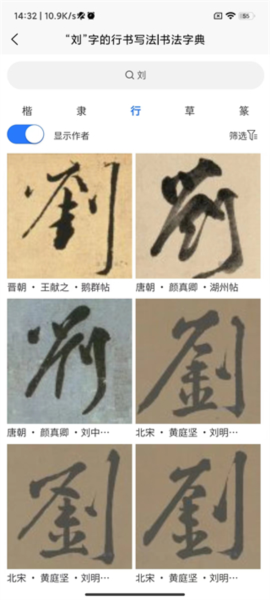 14:32 | 10.9K/s
“刘”字的行书写法|书法字典
刘
楷 隶 行 草 篆
显示作者 筛选
劉 劉
晋朝 · 王献之 · 鹅群帖 唐朝 · 颜真卿 · 湖州帖
劉 劉
唐朝 · 颜真卿 · 刘中… 北宋 · 黄庭坚 · 刘明…
劉 劉
北宋 · 黄庭坚 · 刘明… 北宋 · 黄庭坚 · 刘明…